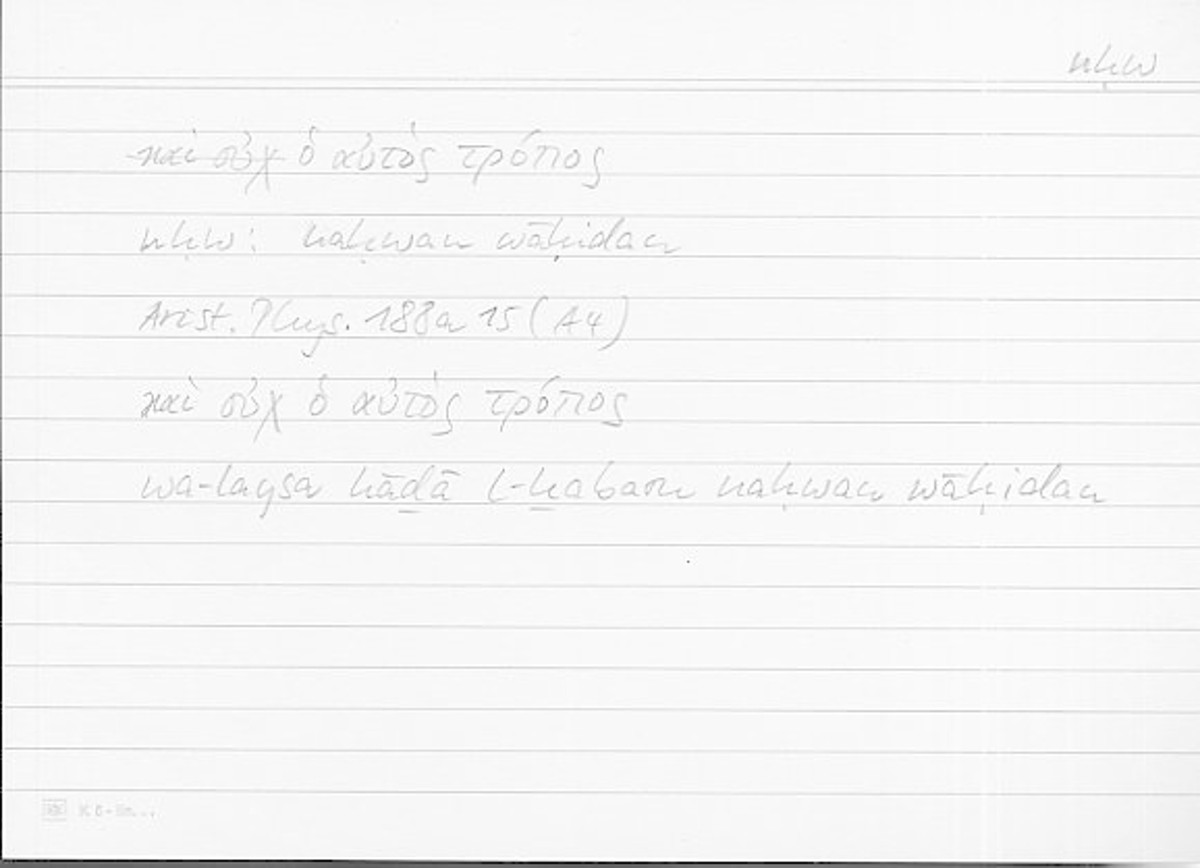 nḥw
~~καὶ οὐχ~~ ὁ αὐτὸς τρόπος
nḥw: naḥwan wāḥidan
Arist. Phys. 188a 15 (A4)
καὶ οὐχ ὁ αὐτὸς τρόπος
wa-laysa hāḏā l-ḫabaru naḥwan wāḥidan